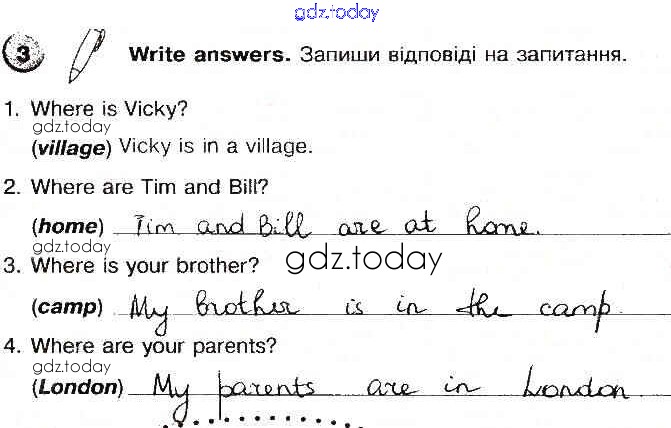 gdz.today
3 Write answers. Запиши відповіді на запитання.
1. Where is Vicky?
gdz.today
(village) Vicky is in a village.
2. Where are Tim and Bill?
(home) Tim and Bill are at home.
gdz.today
3. Where is your brother? gdz.today
(camp) My brother is in the camp
4. Where are your parents?
gdz.today
(London) My parents are in London